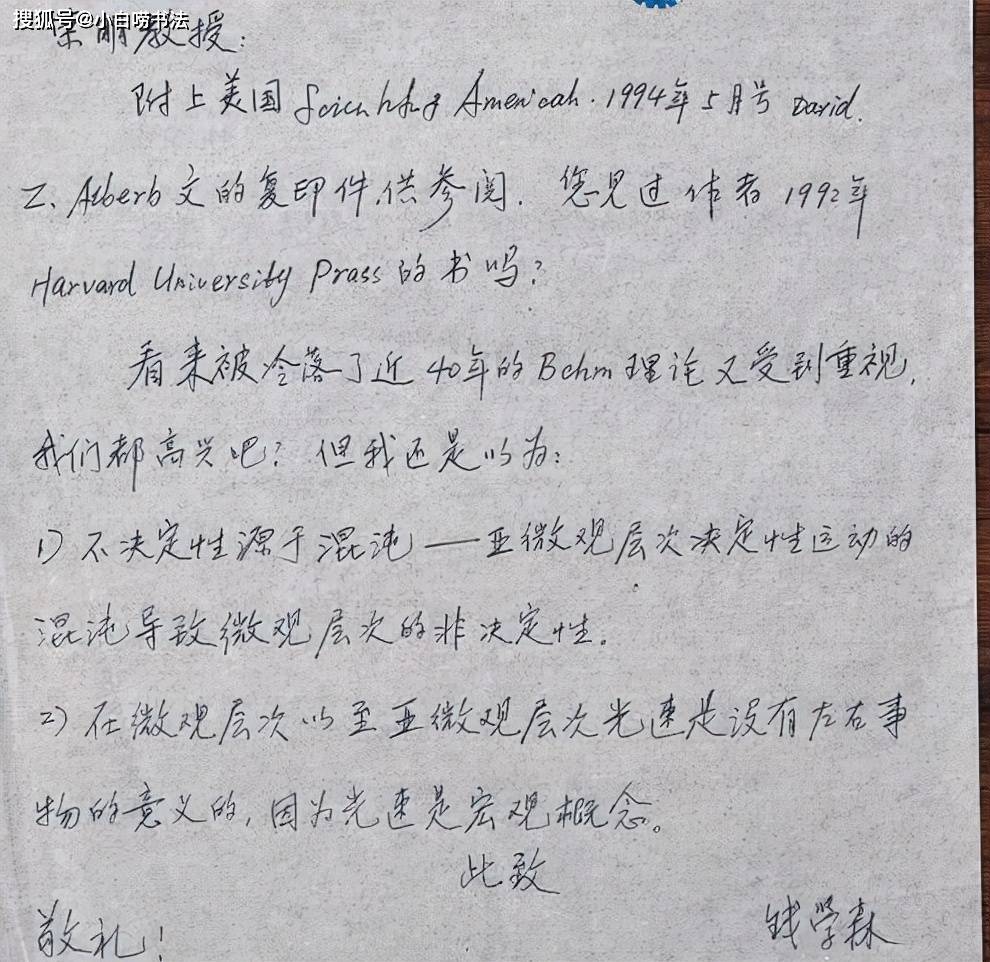 搜狐号@小白唠书法
教授：
附上美国 Scientific American. 1994年5月号 David.
Z. Alberb 文的复印件,供参阅. 您见过作者 1992年
Harvard University Prass 的书吗？
看来被冷落了近40年的Bohm理论又受到重视,
我们都高兴吧？但我还是以为：
1）不决定性源于混沌——亚微观层次决定性运动的
混沌导致微观层次的非决定性。
2）在微观层次以至亚微观层次光速是没有左右事
物的意义的，因为光速是宏观概念。
此致
敬礼！
钱学森